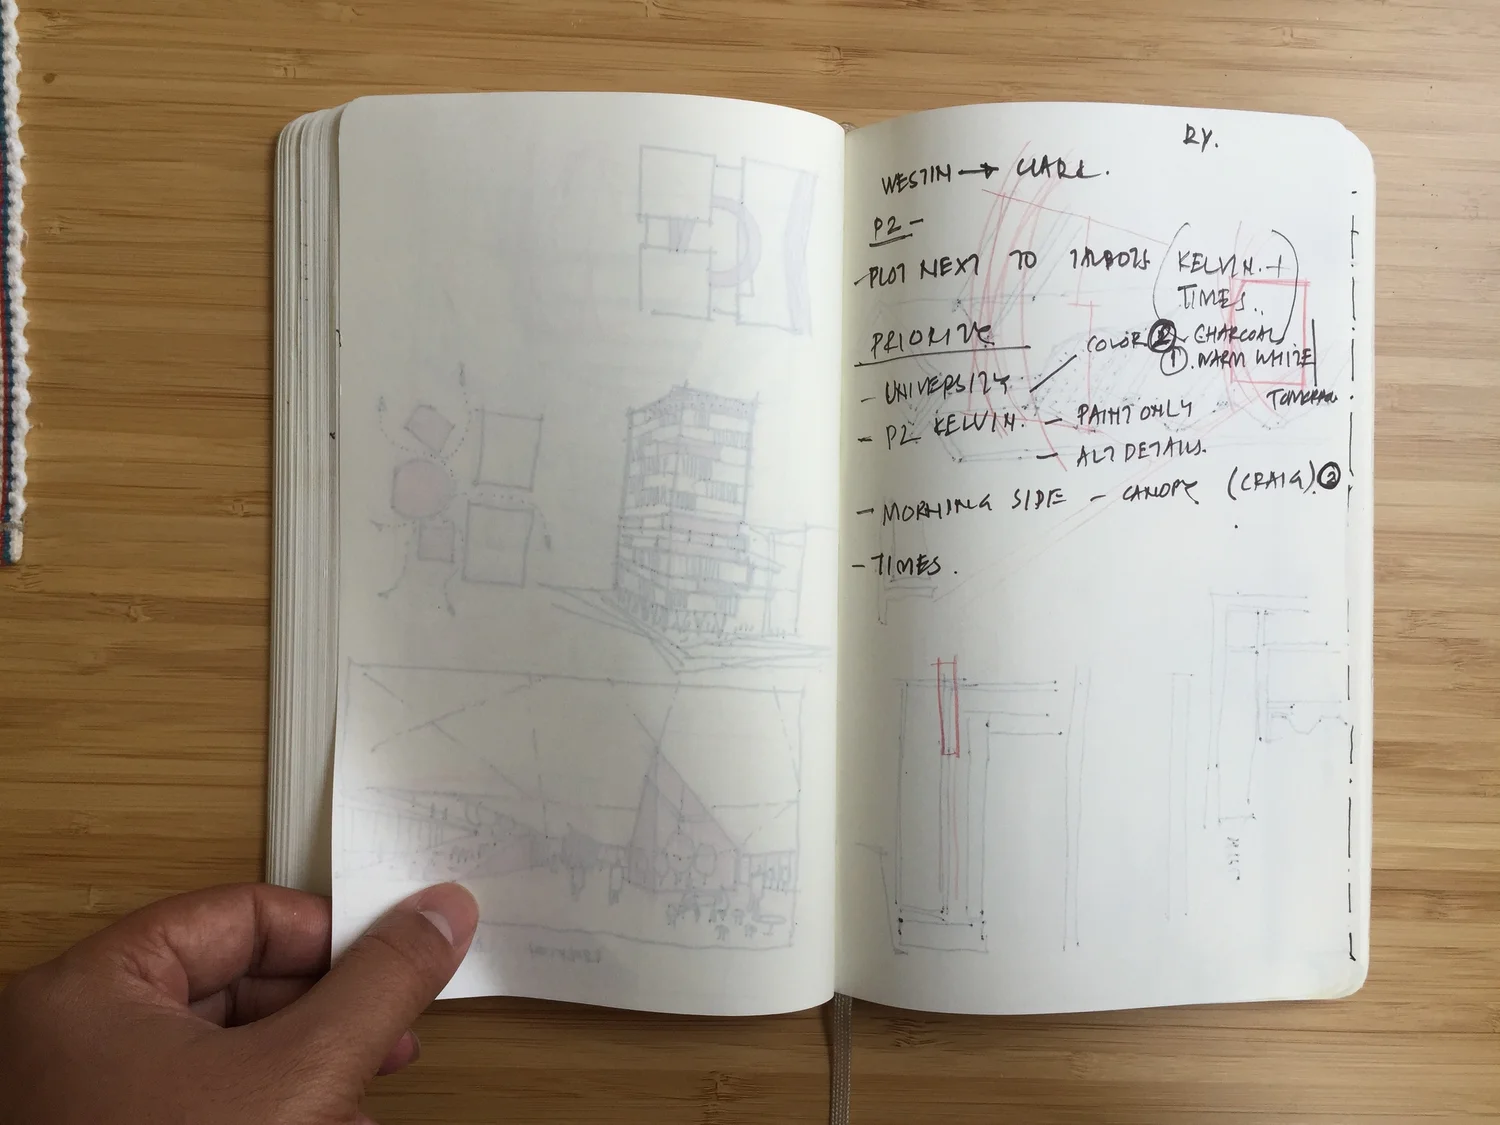 RY.
WESTIN → CLARK.
P2 –
- PLOT NEXT TO TALBOTS (KELVIN. +
TIMES..)
PRIORIZE
COLOR ② - CHARCOAL
① . WARM WHITE
- UNIVERSITY
TOMORROW.
- P2 KELVIN. - PAINT ONLY
- ALT DETAILS.
- MORNING SIDE - CANOPY (CRAIG). ③
- TIMES.